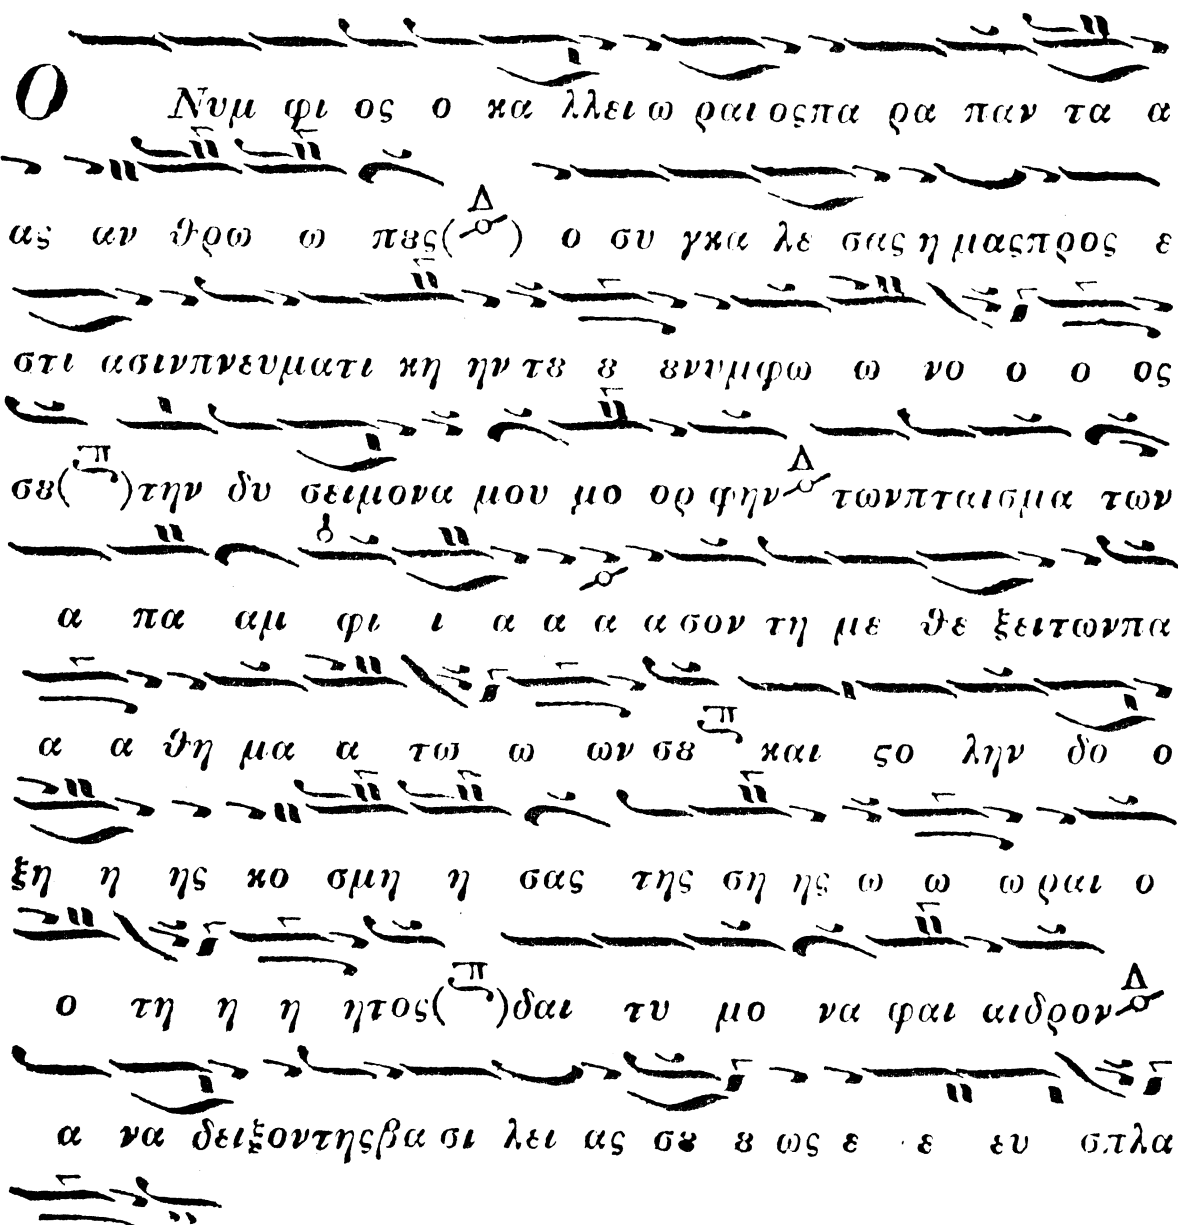 Ο Νυμ φι ος ο κα λλει ω ραι οςπα ρα παν τα α
ας αν θρω ω πȣς(Δ) ο συ γκα λε σας η μαςπρος ε
στι ασινπνευματι κη ην τȣ ȣ ȣνυμφω ω νο ο ο ος
σȣ(π)την δυ σειμονα μου μο ορ φηνΔ τωνπταισμα των
α πα αμ φι ι α α α α σον τη με θε ξειτωνπα
α α θη μα α τω ω ων σȣ π και ϛο λην δο ο
ξη η ης κο σμη η σας της ση ης ω ω ω ραι ο
ο τη η η ητος(π)δαι τυ μο να φαι αιδρονΔ
α να δειξοντηςβα σι λει ας σȣ ȣ ως ε ε ευ σπλα